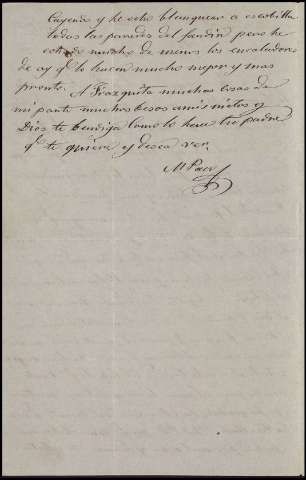 Cayendo y he echo blanquear a escobilla
todas las paredes del jardin pero he
echado mucho de menos los encaladores
de ay qᵉ lo hacen mucho mejor y mas
pronto. A Frazquita muchas cosas de
mi parte muchos besos a mis nietos y
Dios te bendiga como lo hace tu padre
qᵉ te quiere y desea ver.
M Paez